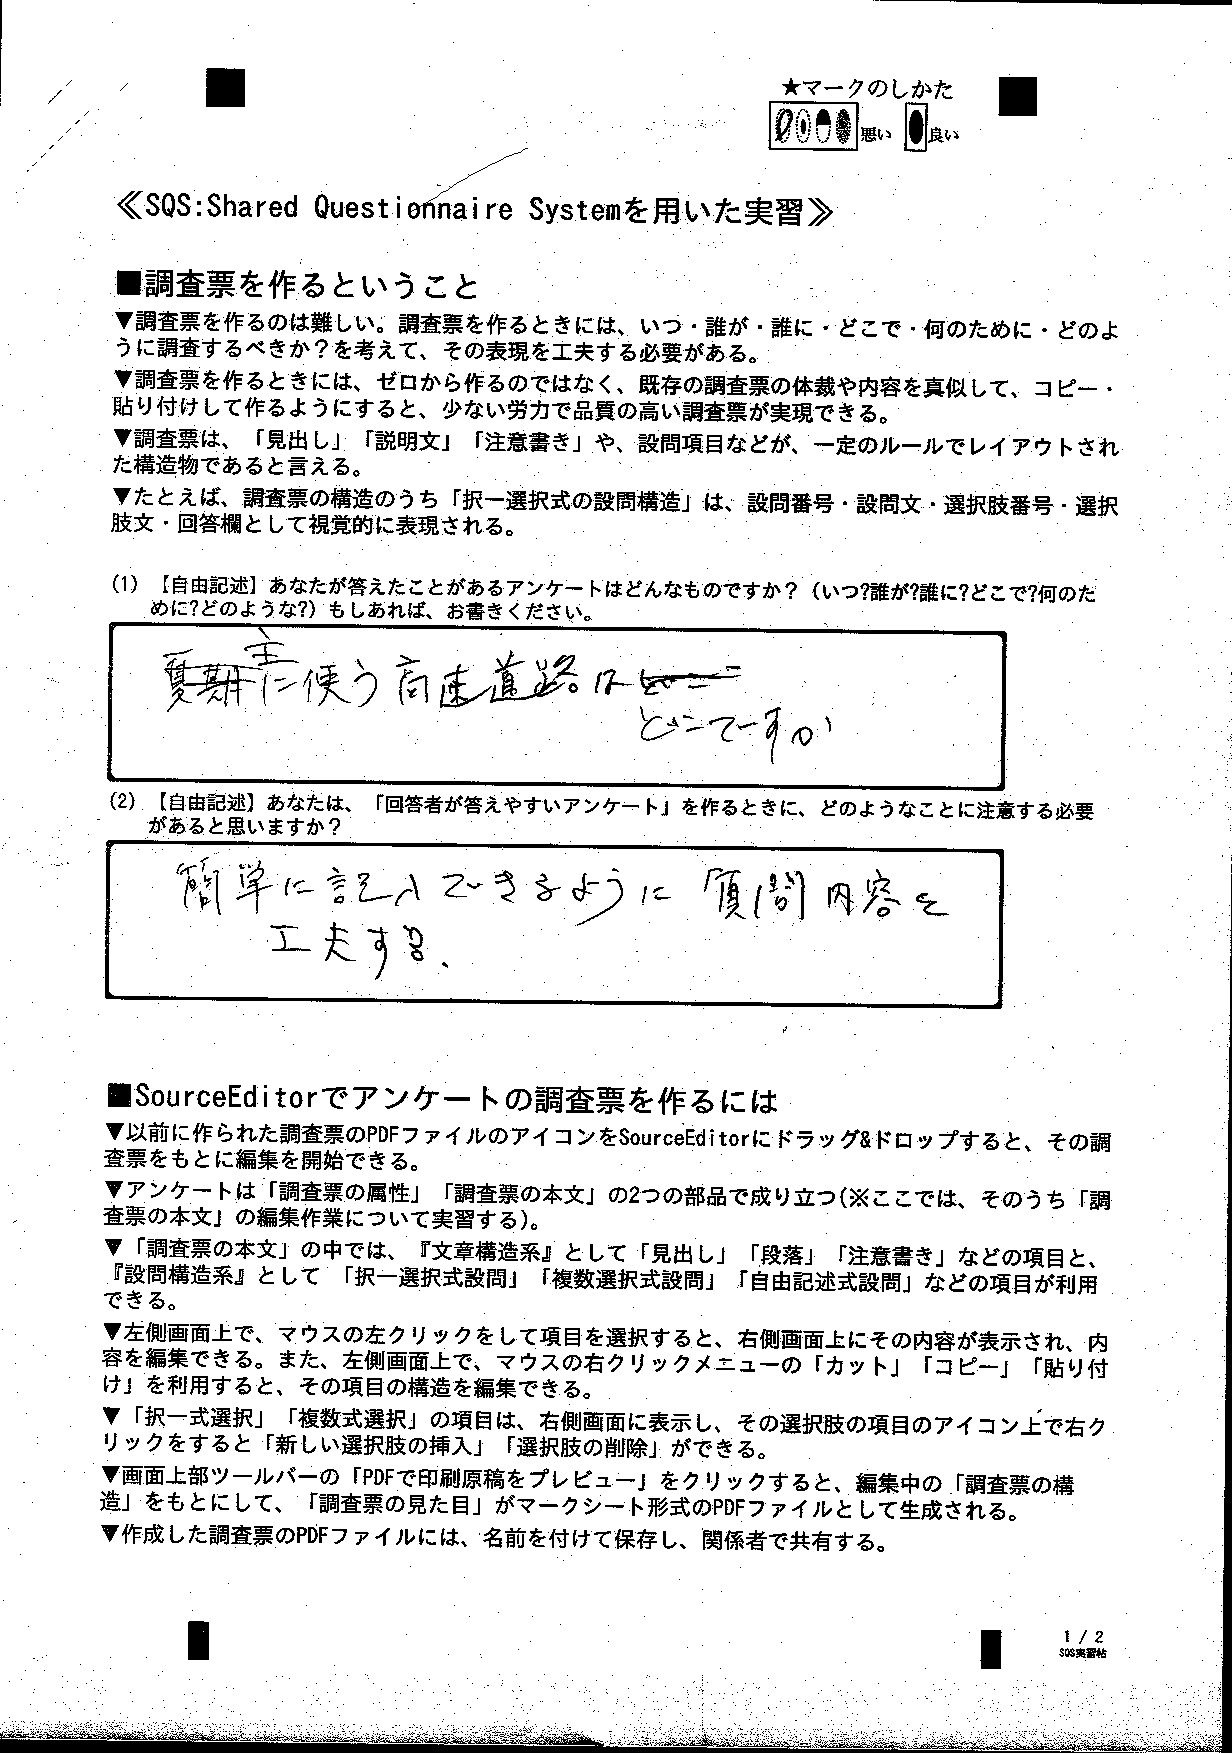 ★マークのしかた
悪い 良い
≪SQS:Shared Questionnaire Systemを用いた実習≫
■調査票を作るということ
▼調査票を作るのは難しい。調査票を作るときには、いつ・誰が・誰に・どこで・何のために・どのよ
うに調査するべきか？を考えて、その表現を工夫する必要がある。
▼調査票を作るときには、ゼロから作るのではなく、既存の調査票の体裁や内容を真似して、コピー・
貼り付けして作るようにすると、少ない労力で品質の高い調査票が実現できる。
▼調査票は、「見出し」「説明文」「注意書き」や、設問項目などが、一定のルールでレイアウトされ
た構造物であると言える。
▼たとえば、調査票の構造のうち「択一選択式の設問構造」は、設問番号・設問文・選択肢番号・選択
肢文・回答欄として視覚的に表現される。
(1) 【自由記述】あなたが答えたことがあるアンケートはどんなものですか？（いつ?誰が?誰に?どこで?何のた
めに?どのような?）もしあれば、お書きください。
主
に使う高速道路は
どこですか
(2) 【自由記述】あなたは、「回答者が答えやすいアンケート」を作るときに、どのようなことに注意する必要
があると思いますか？
簡単に記入できるように 質問内容を
工夫する.
■SourceEditorでアンケートの調査票を作るには
▼以前に作られた調査票のPDFファイルのアイコンをSourceEditorにドラッグ&ドロップすると、その調
査票をもとに編集を開始できる。
▼アンケートは「調査票の属性」「調査票の本文」の2つの部品で成り立つ(※ここでは、そのうち「調
査票の本文」の編集作業について実習する)。
▼「調査票の本文」の中では、『文章構造系』として「見出し」「段落」「注意書き」などの項目と、
『設問構造系』として 「択一選択式設問」「複数選択式設問」「自由記述式設問」などの項目が利用
できる。
▼左側画面上で、マウスの左クリックをして項目を選択すると、右側画面上にその内容が表示され、内
容を編集できる。また、左側画面上で、マウスの右クリックメニューの「カット」「コピー」「貼り付
け」を利用すると、その項目の構造を編集できる。
▼「択一式選択」「複数式選択」の項目は、右側画面に表示し、その選択肢の項目のアイコン上で右ク
リックをすると「新しい選択肢の挿入」「選択肢の削除」ができる。
▼画面上部ツールバーの「PDFで印刷原稿をプレビュー」をクリックすると、編集中の「調査票の構
造」をもとにして、「調査票の見た目」がマークシート形式のPDFファイルとして生成される。
▼作成した調査票のPDFファイルには、名前を付けて保存し、関係者で共有する。
1 / 2
SQS実習帖